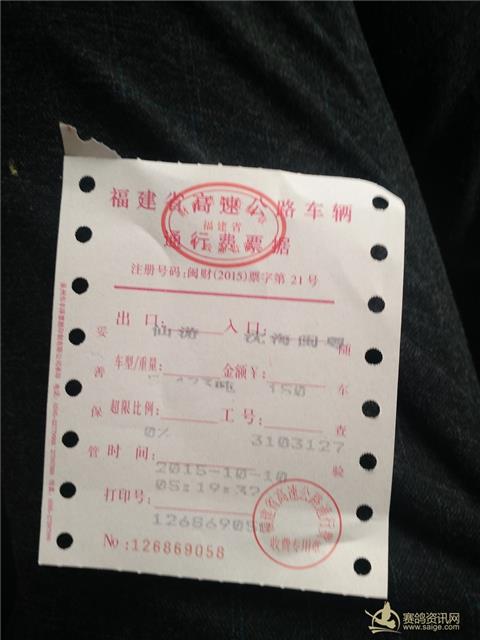 福建省高速公路车辆
通行费票据
福建省
注册号码:闽财(2015)票字第 21 号
出 口: 仙游 入口: 沈海闽粤
车型/重量: 金额¥: 150
超限比例: 0% 工号: 3103127
时 间: 2015-10-10
05:19:37
打印号: 12686905
No:126869058
妥善保管
随车查验
福建省高速公路通行费
收费专用章
赛鸽资讯网
www.saige.com